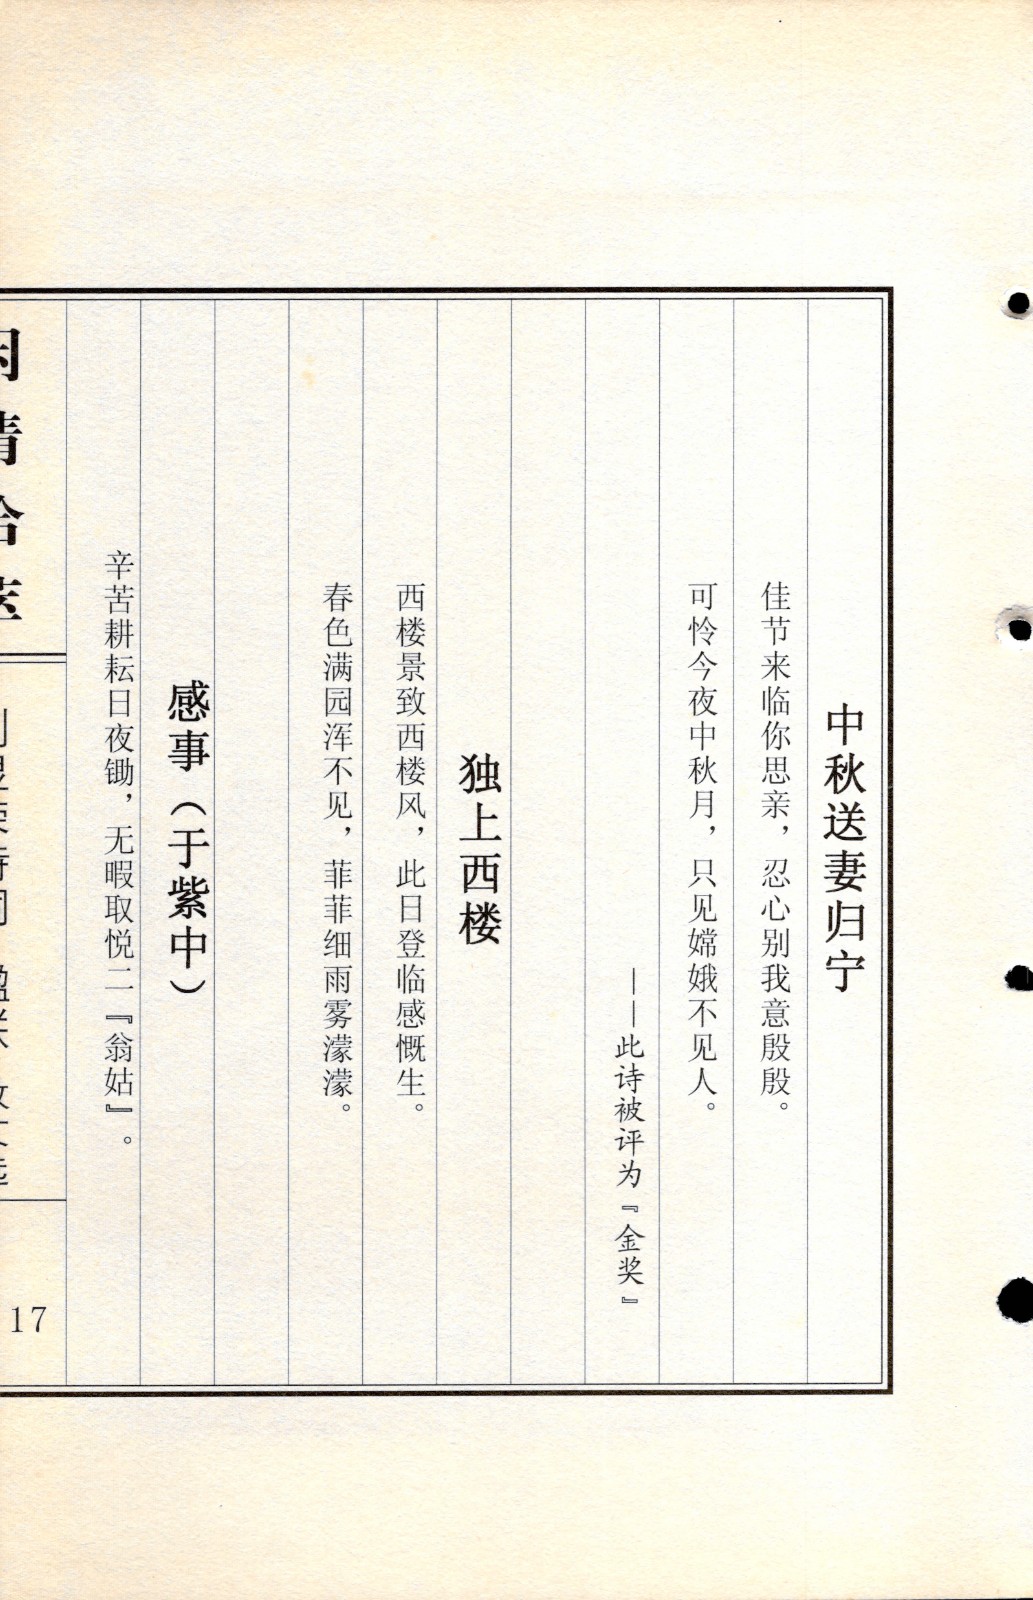 中秋送妻归宁
佳节来临你思亲，忍心别我意殷殷。
可怜今夜中秋月，只见嫦娥不见人。
——此诗被评为『金奖』
独上西楼
西楼景致西楼风，此日登临感慨生。
春色满园浑不见，菲菲细雨雾濛濛。
感事（于紫中）
辛苦耕耘日夜锄，无暇取悦二『翁姑』。
17